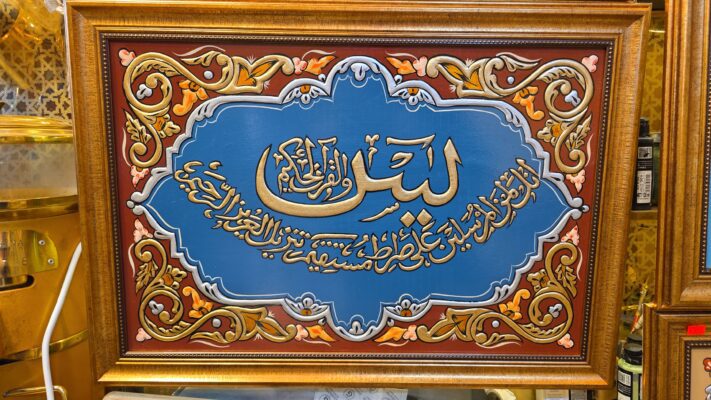 يس
والقرآن الحكيم
انك لمن المرسلين على صراط مستقيم تنزيل العزيز الرحيم